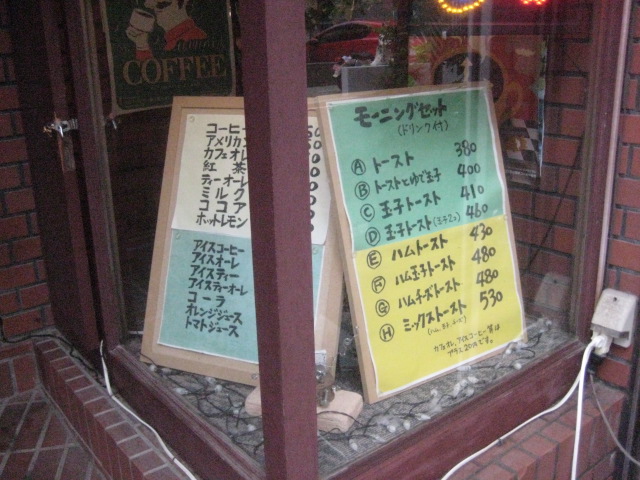 COFFEE
コーヒー
アメリカン
カフェオレ
紅 茶
ティーオーレ
ミルク
ココア
ホットレモン
アイスコーヒー
アイスオーレ
アイスティー
アイスティーオーレ
コーラ
オレンジジュース
トマトジュース
モーニングセット
(ドリンク付)
A トースト 380
B トーストとゆで玉子 400
C 玉子トースト 410
D 玉子トースト(玉子2コ) 460
E ハムトースト 430
F ハム玉子トースト 480
G ハムチーズトースト 480
H ミックストースト 530
カフェオレ、アイスコーヒー等は
プラス20円です。